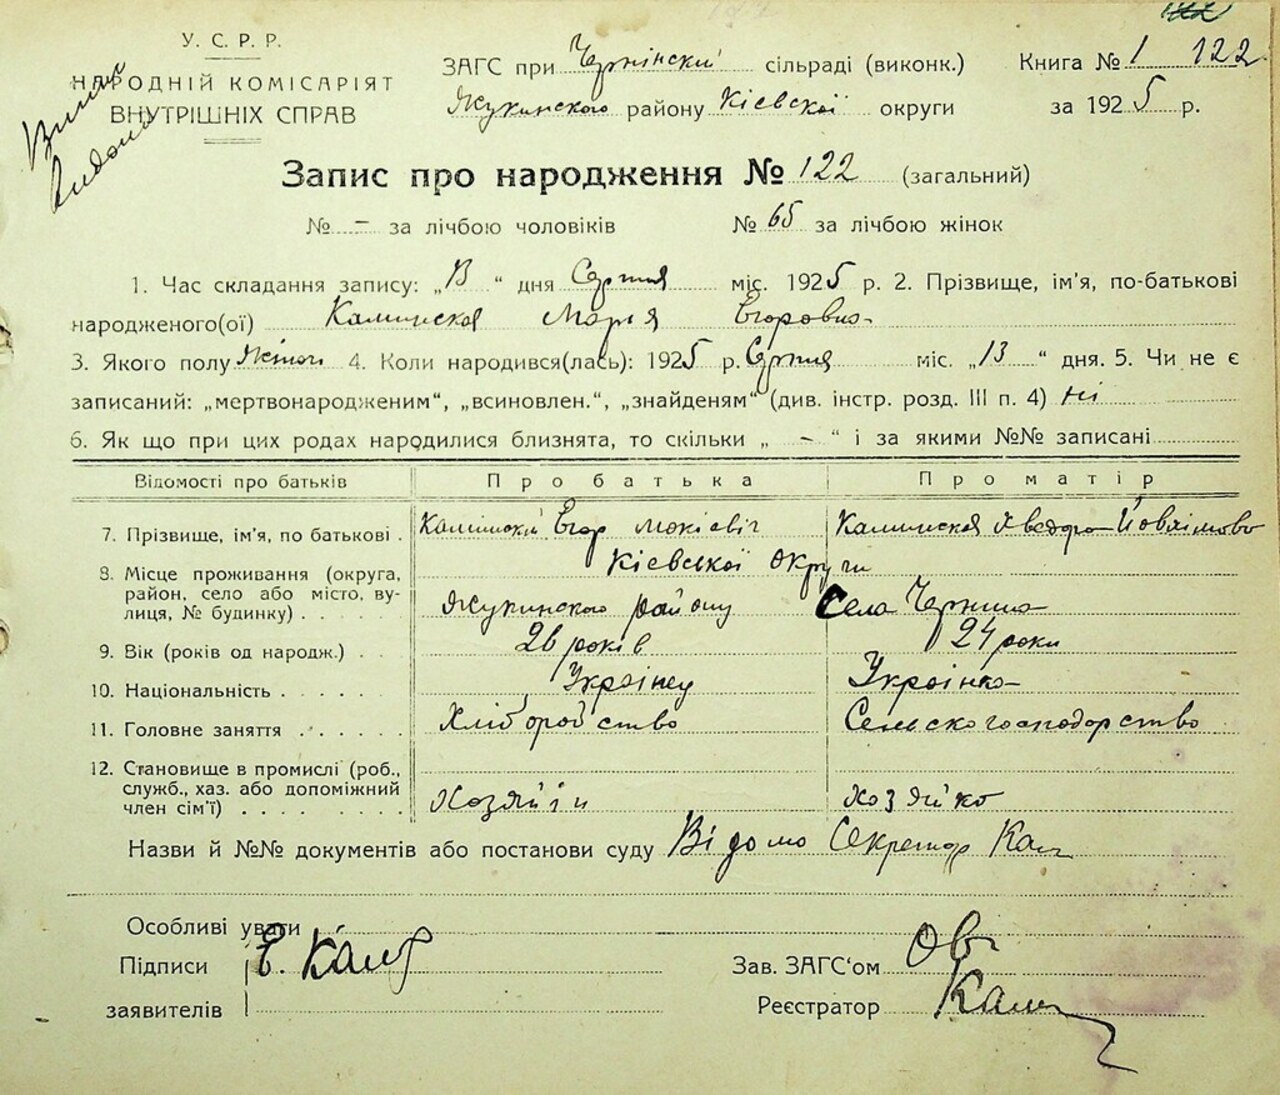 У. С. Р. Р.
НАРОДНІЙ КОМІСАРІЯТ
ВНУТРІШНІХ СПРАВ
ЗАГС при Чернінскій сільраді (виконк.)
Жукинского району Кіевской округи
Книга № 1 122
за 1925 р.
Запис про народження № 122 (загальний)
№ – за лічбою чоловіків № 65 за лічбою жінок
1. Час складання запису: „ “ дня Серпня міс. 1925 р. 2. Прізвище, ім'я, по-батькові
народженого(ої) Каминская Мария Егоровна
3. Якого полу Жіноч 4. Коли народився(лась): 1925 р. Серпня міс. „13“ дня. 5. Чи не є
записаний: „мертвонародженим“, „всиновлен.“, „знайденям“ (див. інстр. розд. III п. 4) ні
6. Як що при цих родах народилися близнята, то скільки „ – “ і за якими №№ записані
Відомості про батьків Про батька Про матір
7. Прізвище, ім'я, по батькові . Камінский Егор Мокіевіч Каминская
8. Місце проживання (округа, район, село або місто, вулиця, № будинку) . . . . . Кієвської Округи
Жукинского району Села Чернина
9. Вік (років од народж.) . . 26 років 24 роки
10. Національність . . . . . Українец Українка
11. Головне заняття . . . . . . Хліборобство Сельскогосподарство
12. Становище в промислі (роб., служб., хаз. або допоміжний член сім'ї) . . . . . . . . . Хозяйін Хозяйко
Назви й №№ документів або постанови суду Відомо Секретар Кам
Особливі уваги
Підписи Е. Кам
заявителів
Зав. ЗАГС‘ом
Реєстратор Кам